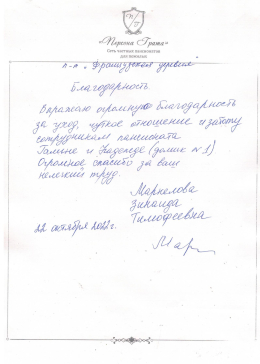 «Персона Грата»
Сеть частных пансионатов
для пожилых
п-т "Французская деревня"
Благодарность
Выражаю огромную благодарность
за уход, чуткое отношение и заботу
сотрудникам пансионата
Галине и Надежде (домик №1)
Огромное спасибо за ваш
нелегкий труд.
Маркелова
Зинаида
Тимофеевна
22 октября 2022г.